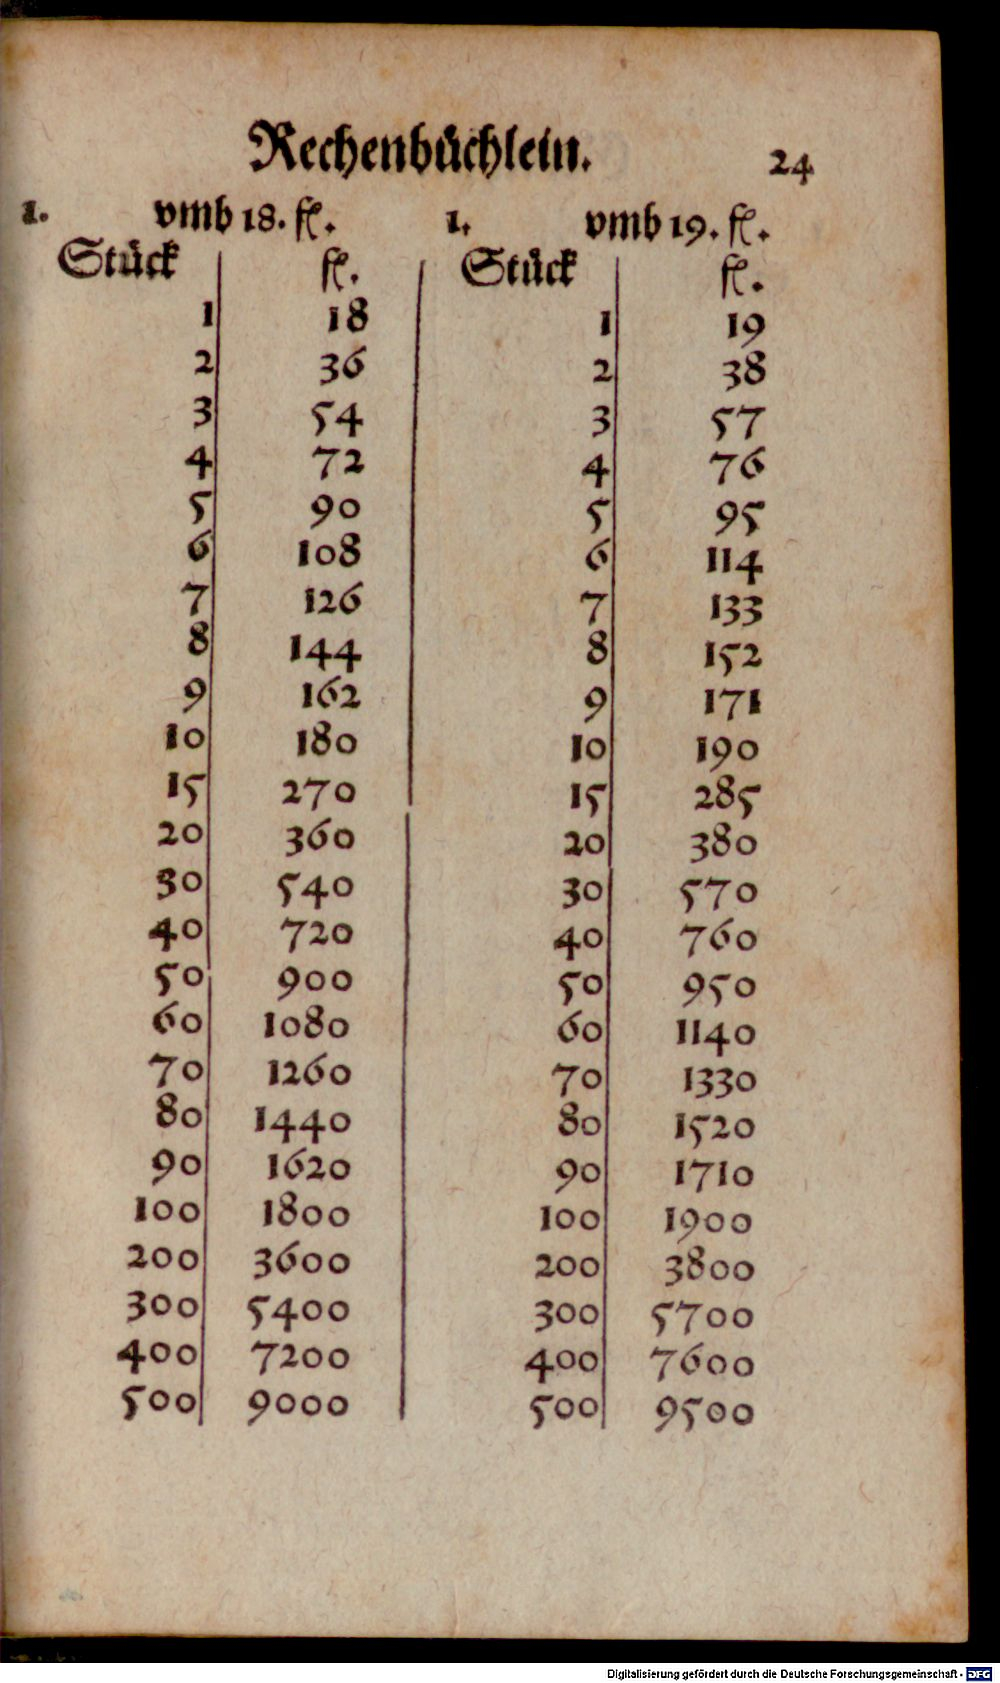 Rechenbüchlein. 24
1. vmb 18. fl. 1. vmb 19. fl.
Stück fl. Stück fl.
1 18 1 19
2 36 2 38
3 54 3 57
4 72 4 76
5 90 5 95
6 108 6 114
7 126 7 133
8 144 8 152
9 162 9 171
10 180 10 190
15 270 15 285
20 360 20 380
30 540 30 570
40 720 40 760
50 900 50 950
60 1080 60 1140
70 1260 70 1330
80 1440 80 1520
90 1620 90 1710
100 1800 100 1900
200 3600 200 3800
300 5400 300 5700
400 7200 400 7600
500 9000 500 9500
Digitalisierung gefördert durch die Deutsche Forschungsgemeinschaft - DFG